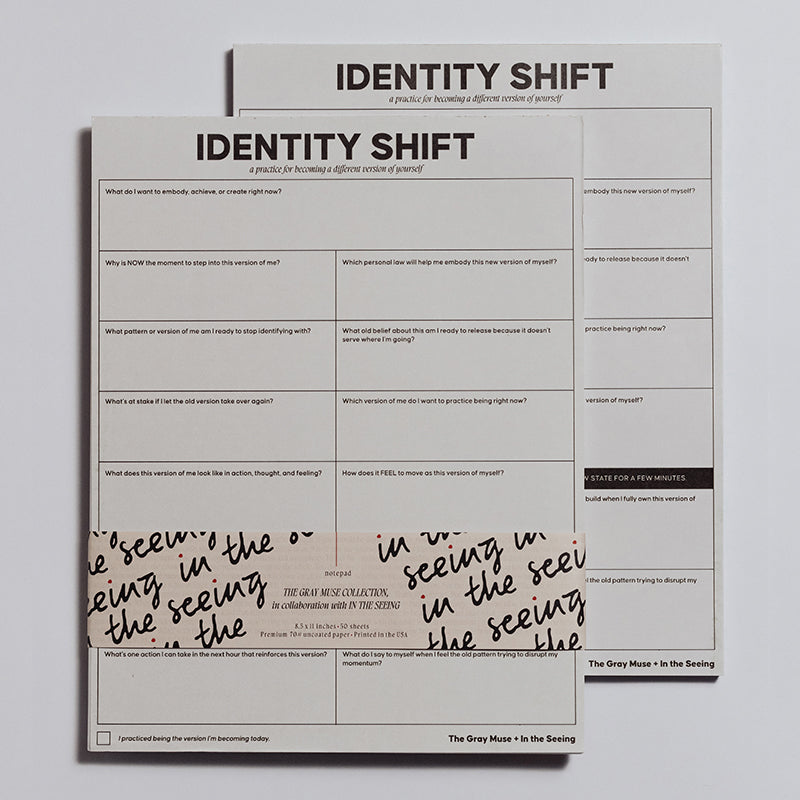 IDENTITY SHIFT
a practice for becoming a different version of yourself
embody this new version of myself?
ready to release because it doesn't
practice being right now?
version of myself?
STATE FOR A FEW MINUTES.
build when I fully own this version of
the old pattern trying to disrupt my
The Gray Muse + In the Seeing
IDENTITY SHIFT
a practice for becoming a different version of yourself
What do I want to embody, achieve, or create right now?
Why is NOW the moment to step into this version of me?
Which personal law will help me embody this new version of myself?
What pattern or version of me am I ready to stop identifying with?
What old belief about this am I ready to release because it doesn't
serve where I'm going?
What's at stake if I let the old version take over again?
Which version of me do I want to practice being right now?
What does this version of me look like in action, thought, and feeling?
How does it FEEL to move as this version of myself?
seeing in the se
seeing in the
the seeing
in the
in the
seeing in
in the seei
the seeing
notepad
THE GRAY MUSE COLLECTION,
in collaboration with IN THE SEEING
8.5 x 11 inches • 50 sheets
Premium 70# uncoated paper • Printed in the USA
What's one action I can take in the next hour that reinforces this version?
What do I say to myself when I feel the old pattern trying to disrupt my
momentum?
I practiced being the version I'm becoming today.
The Gray Muse + In the Seeing